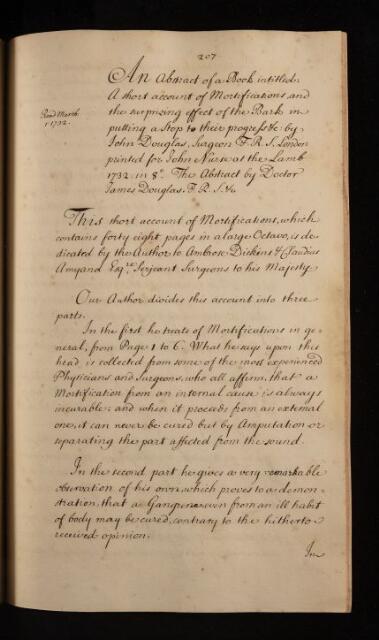 207
Read March
1732.
An Abstract of a Book intitled.
A short account of Mortifications, and
the surprizing effect of the Bark in
putting a Stop to their progress &c by
John Douglas, Surgeon F. R. S. London
printed for John Nurse at the Lamb
1732. in 8º. The Abstract by Doctor
James Douglas. F. R. S. &c
This short account of Mortifications, which
contains forty eight pages in a large Octavo, is de-
dicated by the Author to Ambrose Dickins & Claudius
Amyand Esq.rs Serjeant Surgeons to his Majesty.
Our Author divides this account into three
parts.
In the first he treats of Mortifications in ge-
neral, from Page 1 to 6. What he says upon this
head is collected from some of the most experienced
Physicians and Surgeons, who all affirm, that a
Mortification from an internal cause is always
incurable; and when it proceeds from an external
one, it can never be cured but by Amputation or
separating the part affected from the sound.
In the second part he gives a very remarkable
observation of his own, which proves to a demon-
stration, that a Gangrene even from an ill habit
of body may be cured, contrary to the hitherto
received opinion.
In